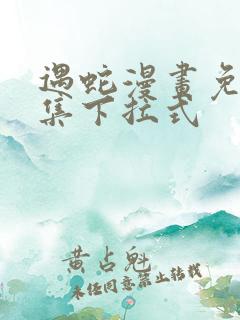 遇蛇漫畫免
集下拉式
黄占魁
未经同意禁止转载